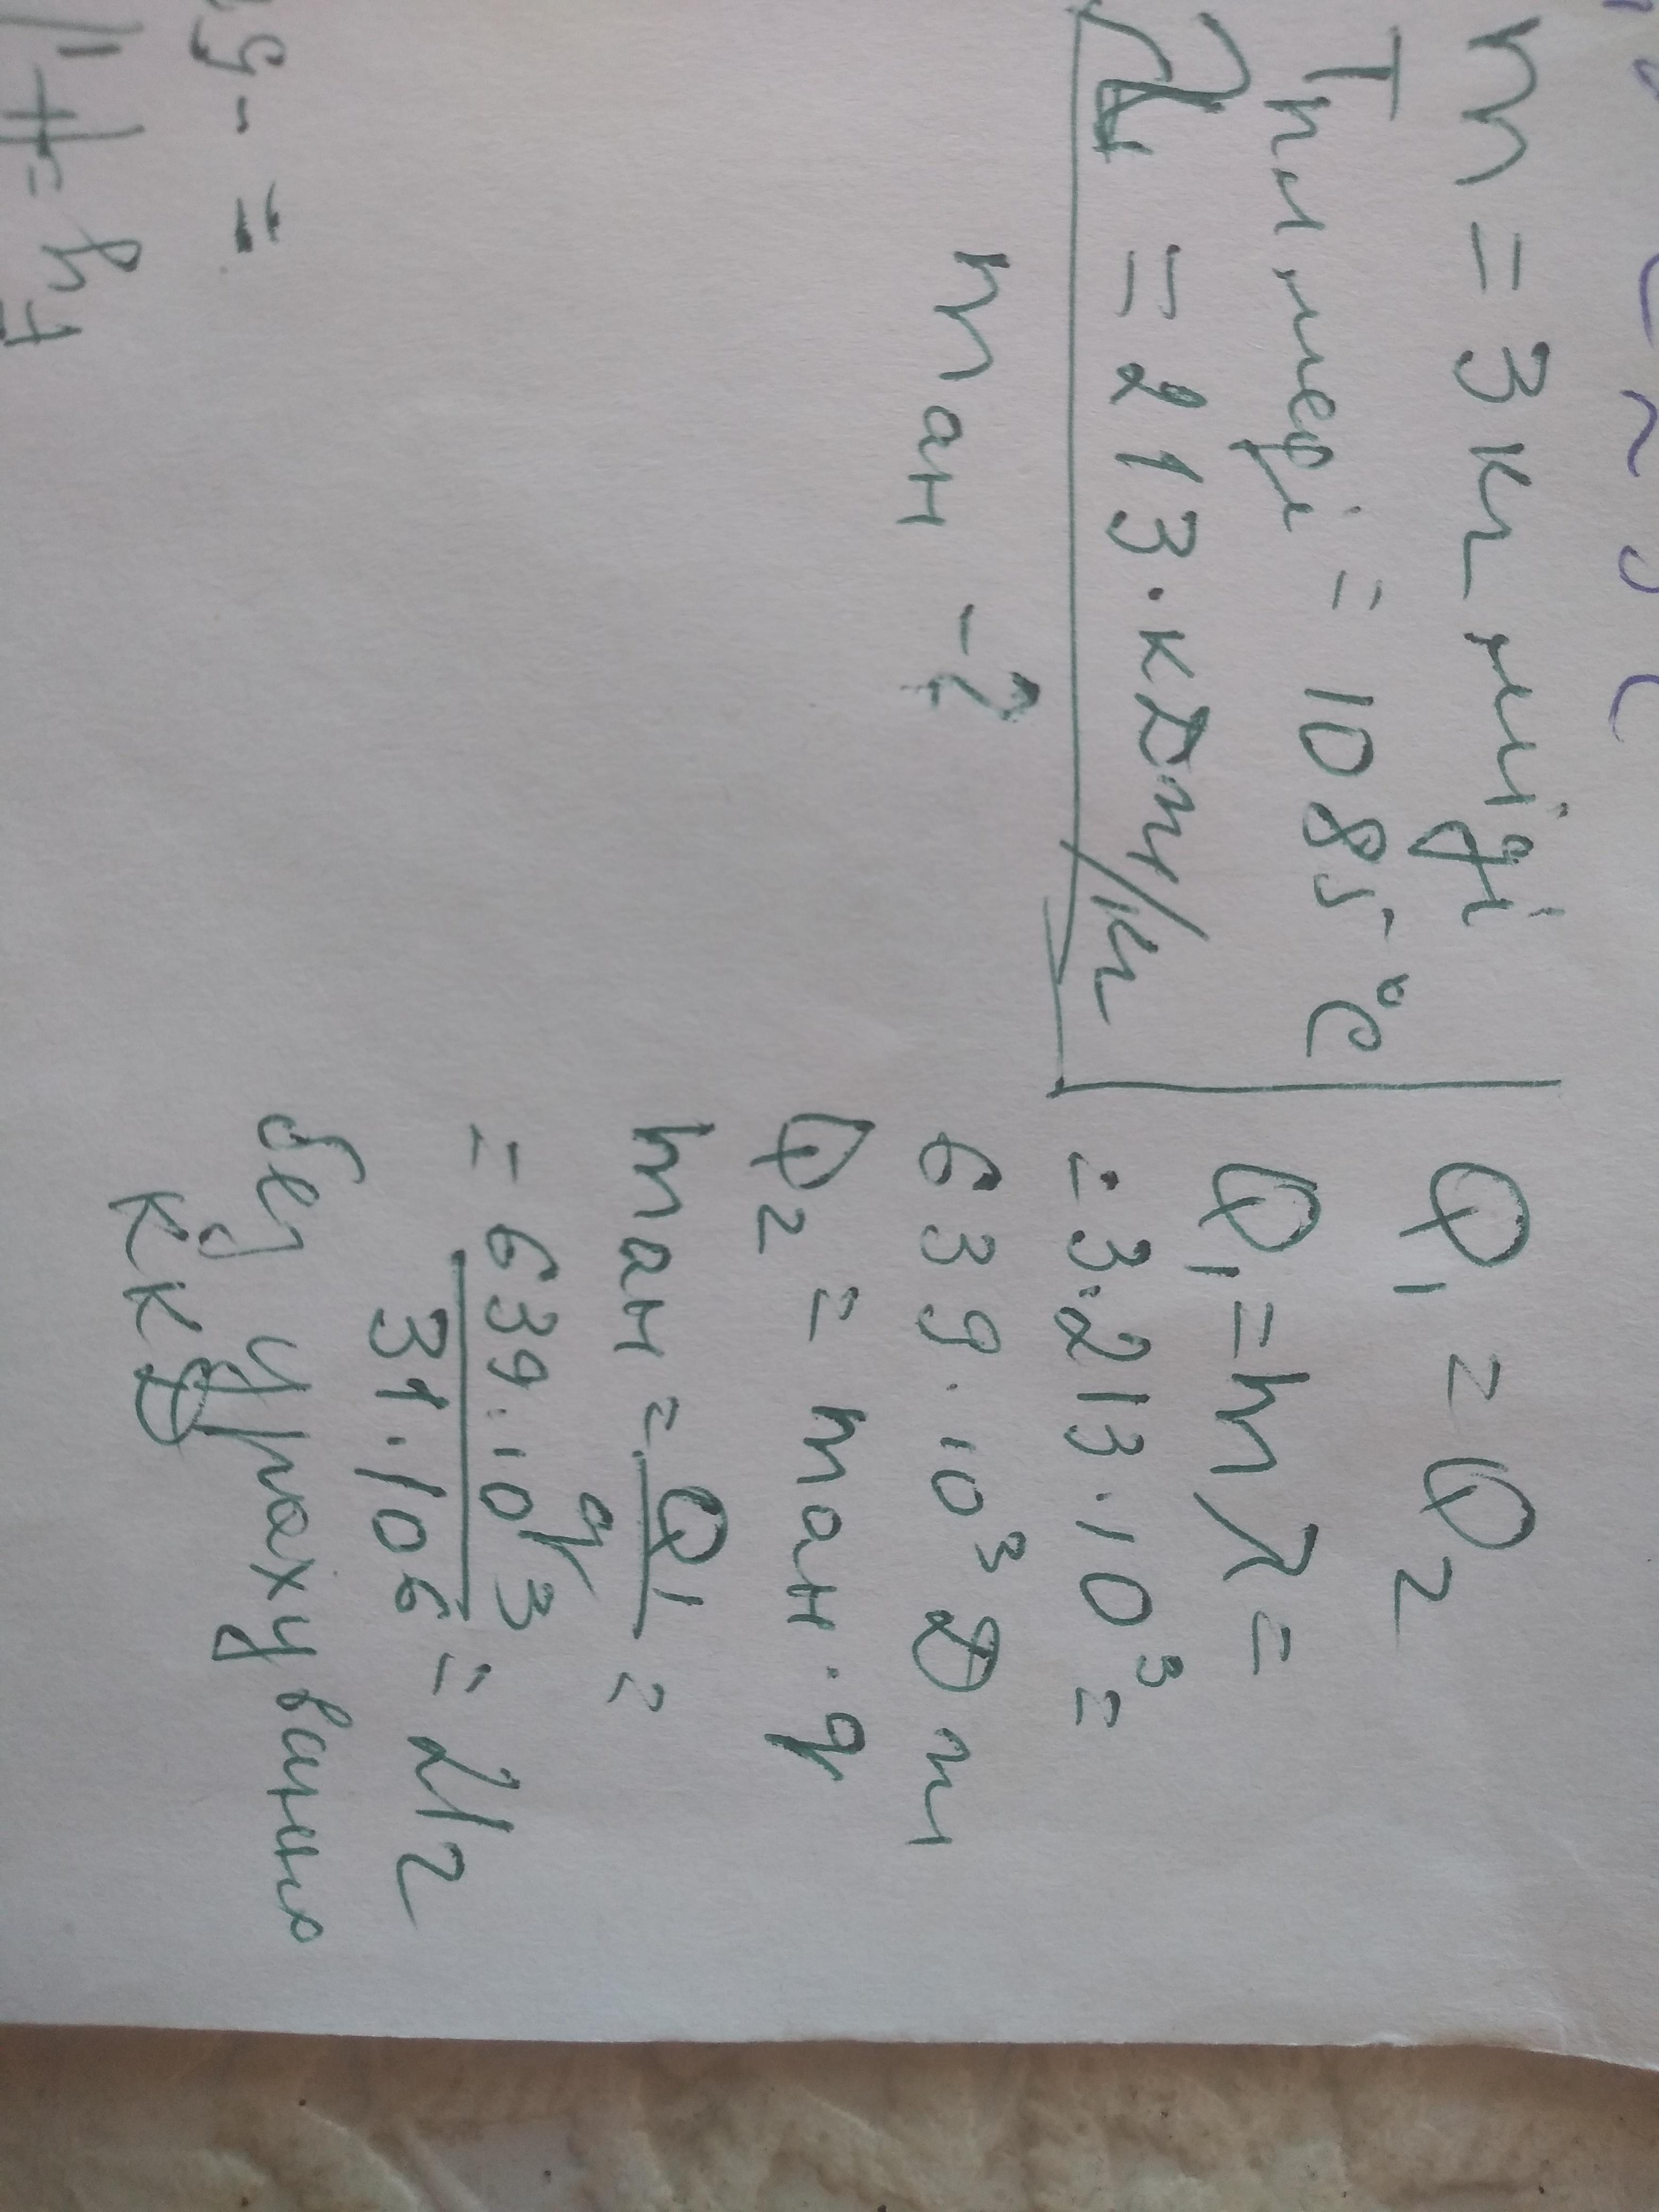 m = 3 кг міді
Tпл міді = 1085 °C
λ = 213 · кДж/кг
mан - ?
Q1 = Q2
Q1 = m λ =
= 3·213·10³ =
639·10³ Дж
Q2 = mан · q
mан = Q1/q =
= 639·10³/31·10⁶ = 21 г
без урахування
ККД